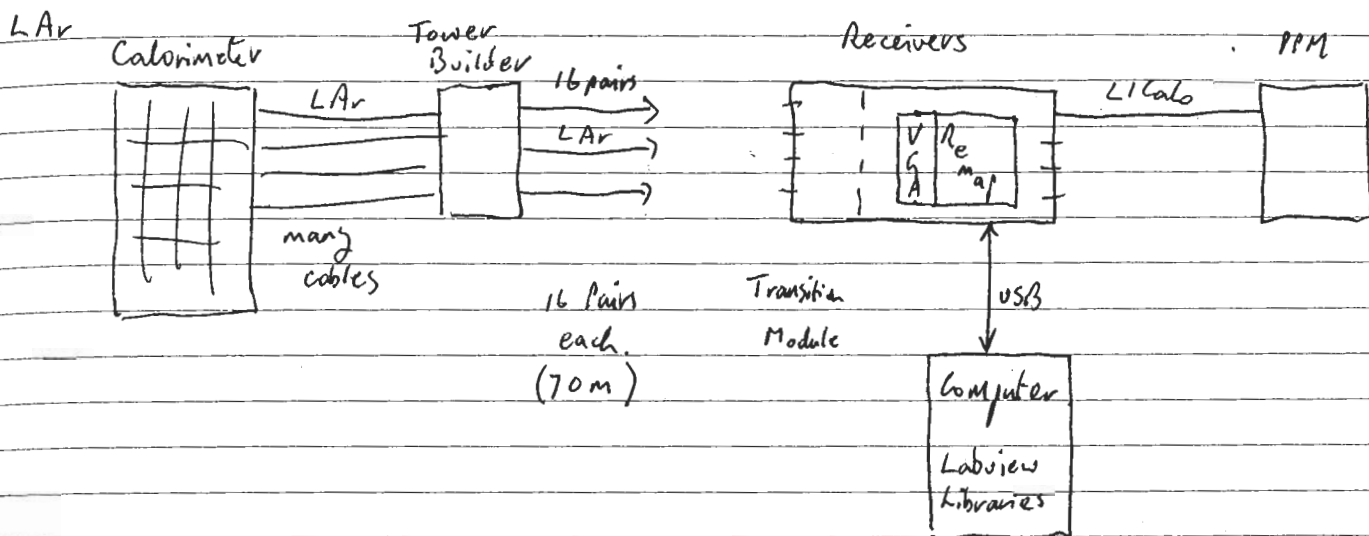 LAr
Calorimeter
Tower
Builder
Receivers
PPM
LAr
16 pairs
LAr
VGA
Remap
L1Calo
many
cables
16 Pairs
each.
(70m)
Transition
Module
USB
Computer
Labview
Libraries